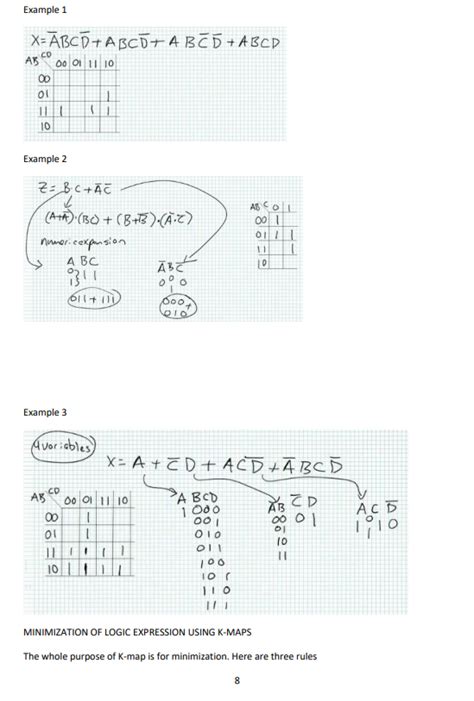 Example 1
X = A̅BCD̅ + ABCD̅ + ABC̅D̅ + ABCD
AB CD 00 01 11 10
00
01 1
11 1 1 1
10
Example 2
Z = B·C + A̅C̅
(A+A̅)·(BC) + (B+B̅)·(A̅·C̅)
numer. expansion
A BC
0} 1 1
1} 1 1
011 + 111
A̅ B C̅
0 0 0
1
000 +
010
AB C 0 1
00 1
01 1 1
11 1
10
Example 3
4 variables
X = A + C̅D + ACD̅ + A̅BCD̅
AB CD 00 01 11 10
00 1
01 1
11 1 1 1 1
10 1 1 1 1
A BCD
1 000
001
010
011
100
101
110
111
AB C̅ D
00 0 1
01
10
11
A C D̅
1 0 1 0
1
MINIMIZATION OF LOGIC EXPRESSION USING K-MAPS
The whole purpose of K-map is for minimization. Here are three rules
8